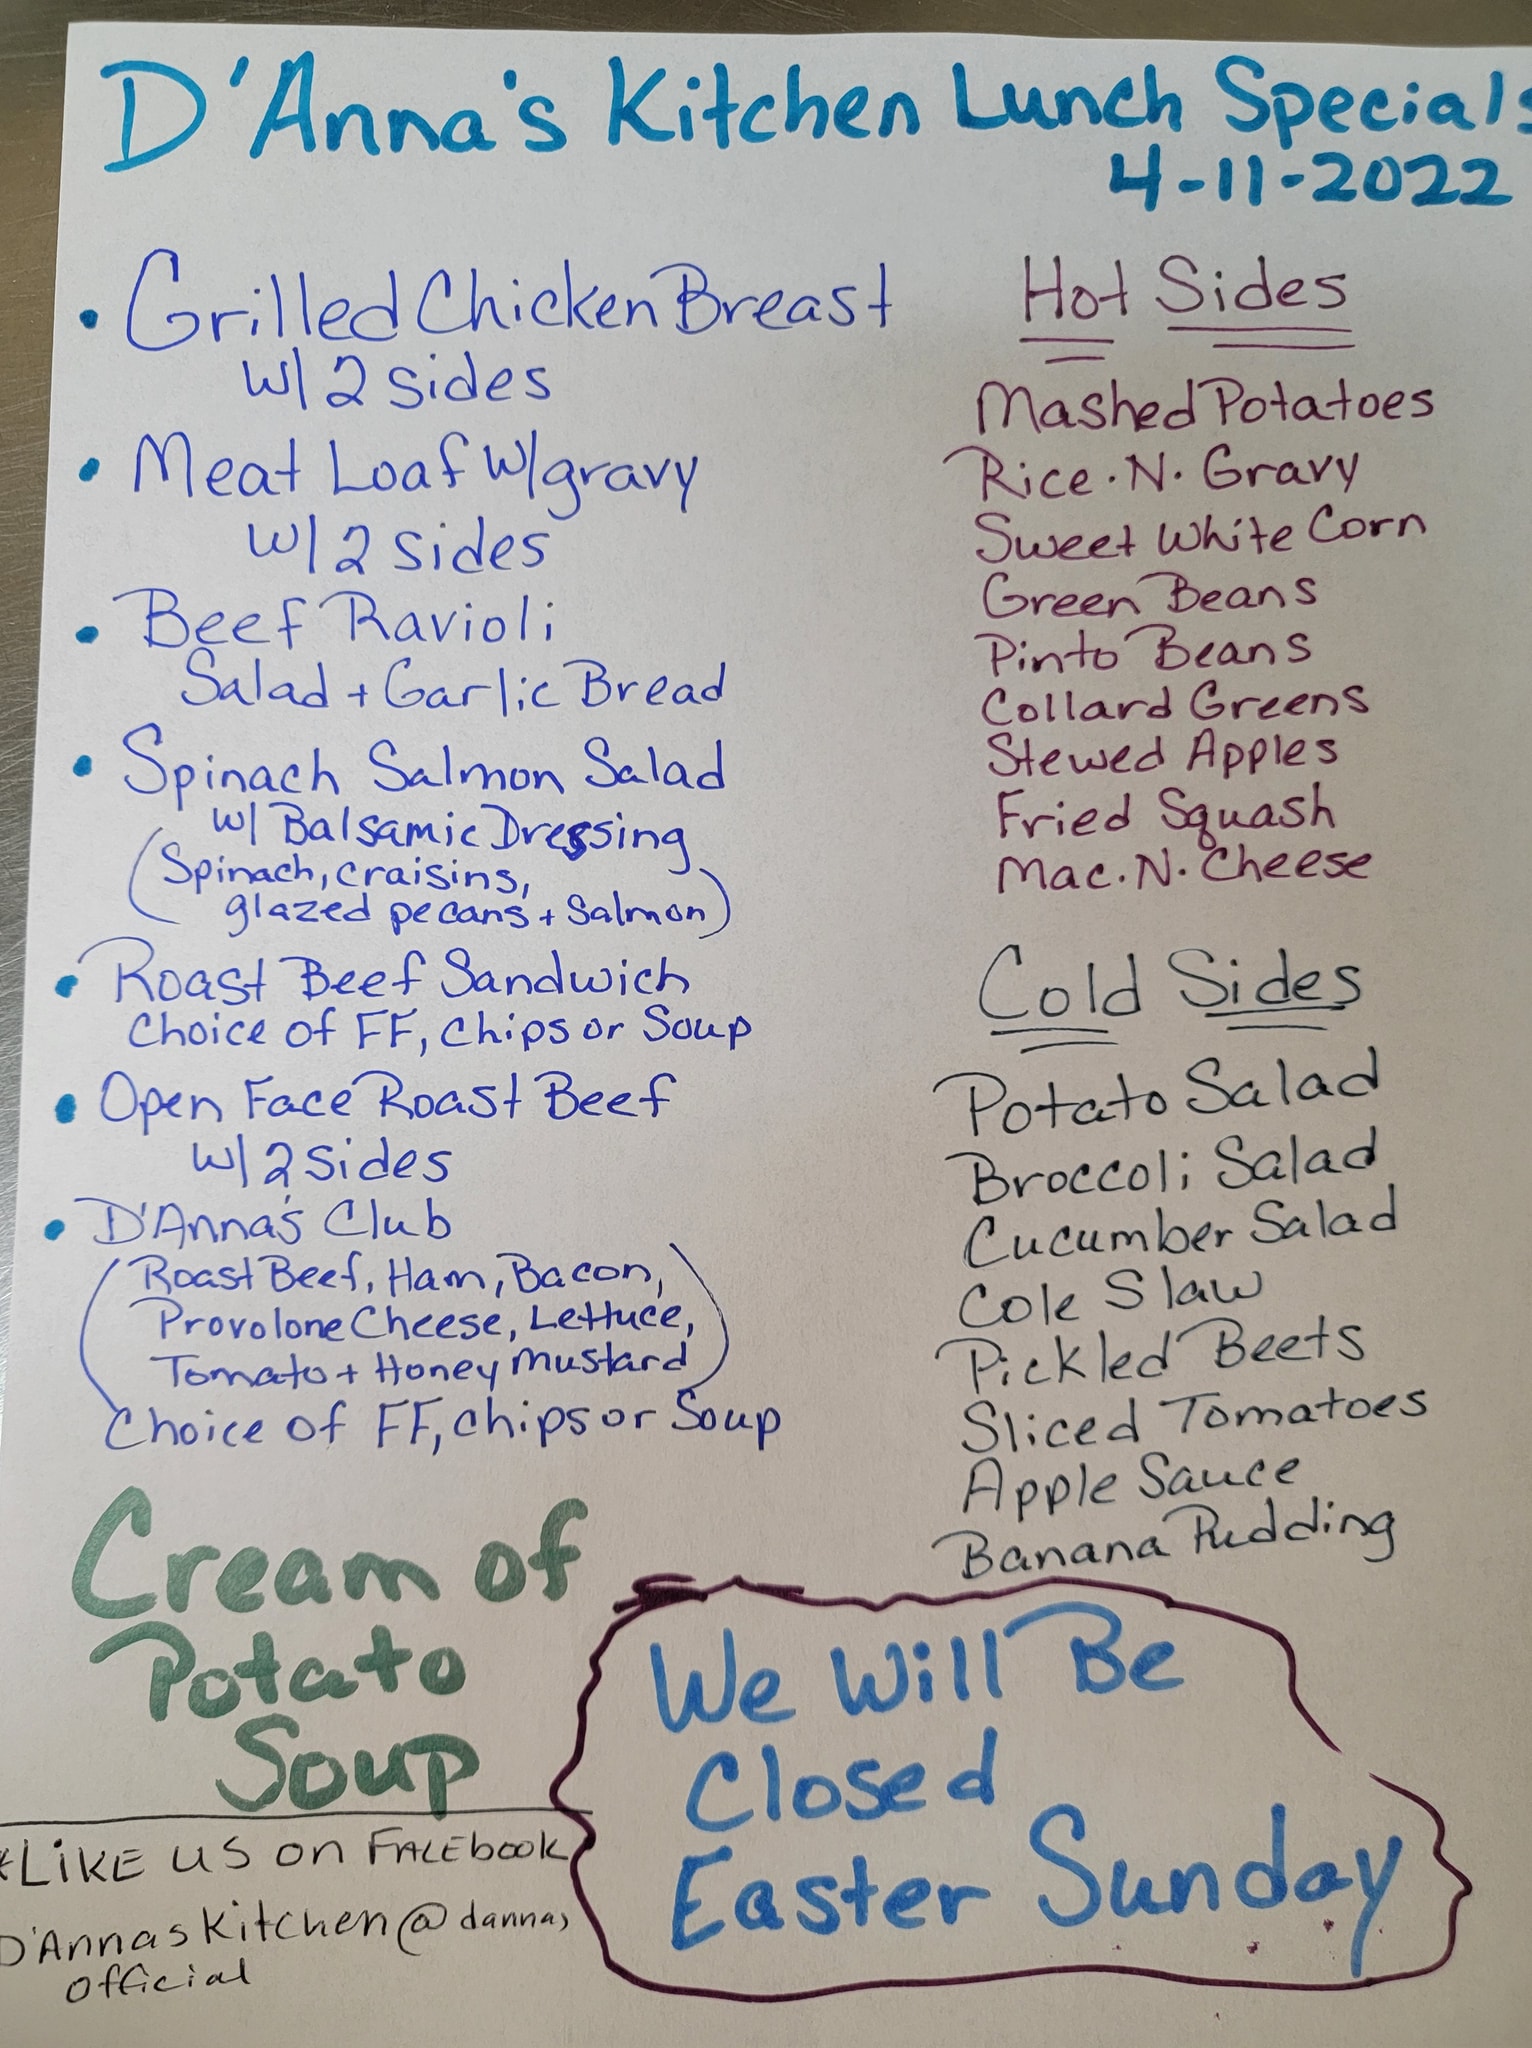 D'Anna's Kitchen Lunch Specials
4-11-2022
• Grilled Chicken Breast
w/ 2 sides
• Meat Loaf w/gravy
w/ 2 sides
• Beef Ravioli
Salad + Garlic Bread
• Spinach Salmon Salad
w/ Balsamic Dressing
(Spinach, craisins,
glazed pecans + Salmon)
• Roast Beef Sandwich
Choice of FF, chips or Soup
• Open Face Roast Beef
w/ 2 sides
• D'Anna's Club
(Roast Beef, Ham, Bacon,
Provolone Cheese, Lettuce,
Tomato + Honey Mustard)
Choice of FF, chips or Soup
Hot Sides
Mashed Potatoes
Rice.N.Gravy
Sweet White Corn
Green Beans
Pinto Beans
Collard Greens
Stewed Apples
Fried Squash
Mac.N.Cheese
Cold Sides
Potato Salad
Broccoli Salad
Cucumber Salad
Cole Slaw
Pickled Beets
Sliced Tomatoes
Apple Sauce
Banana Pudding
Cream of
Potato
Soup
*LIKE US ON FACEbook
D'Annas Kitchen@dannas
official
We Will Be
Closed
Easter Sunday